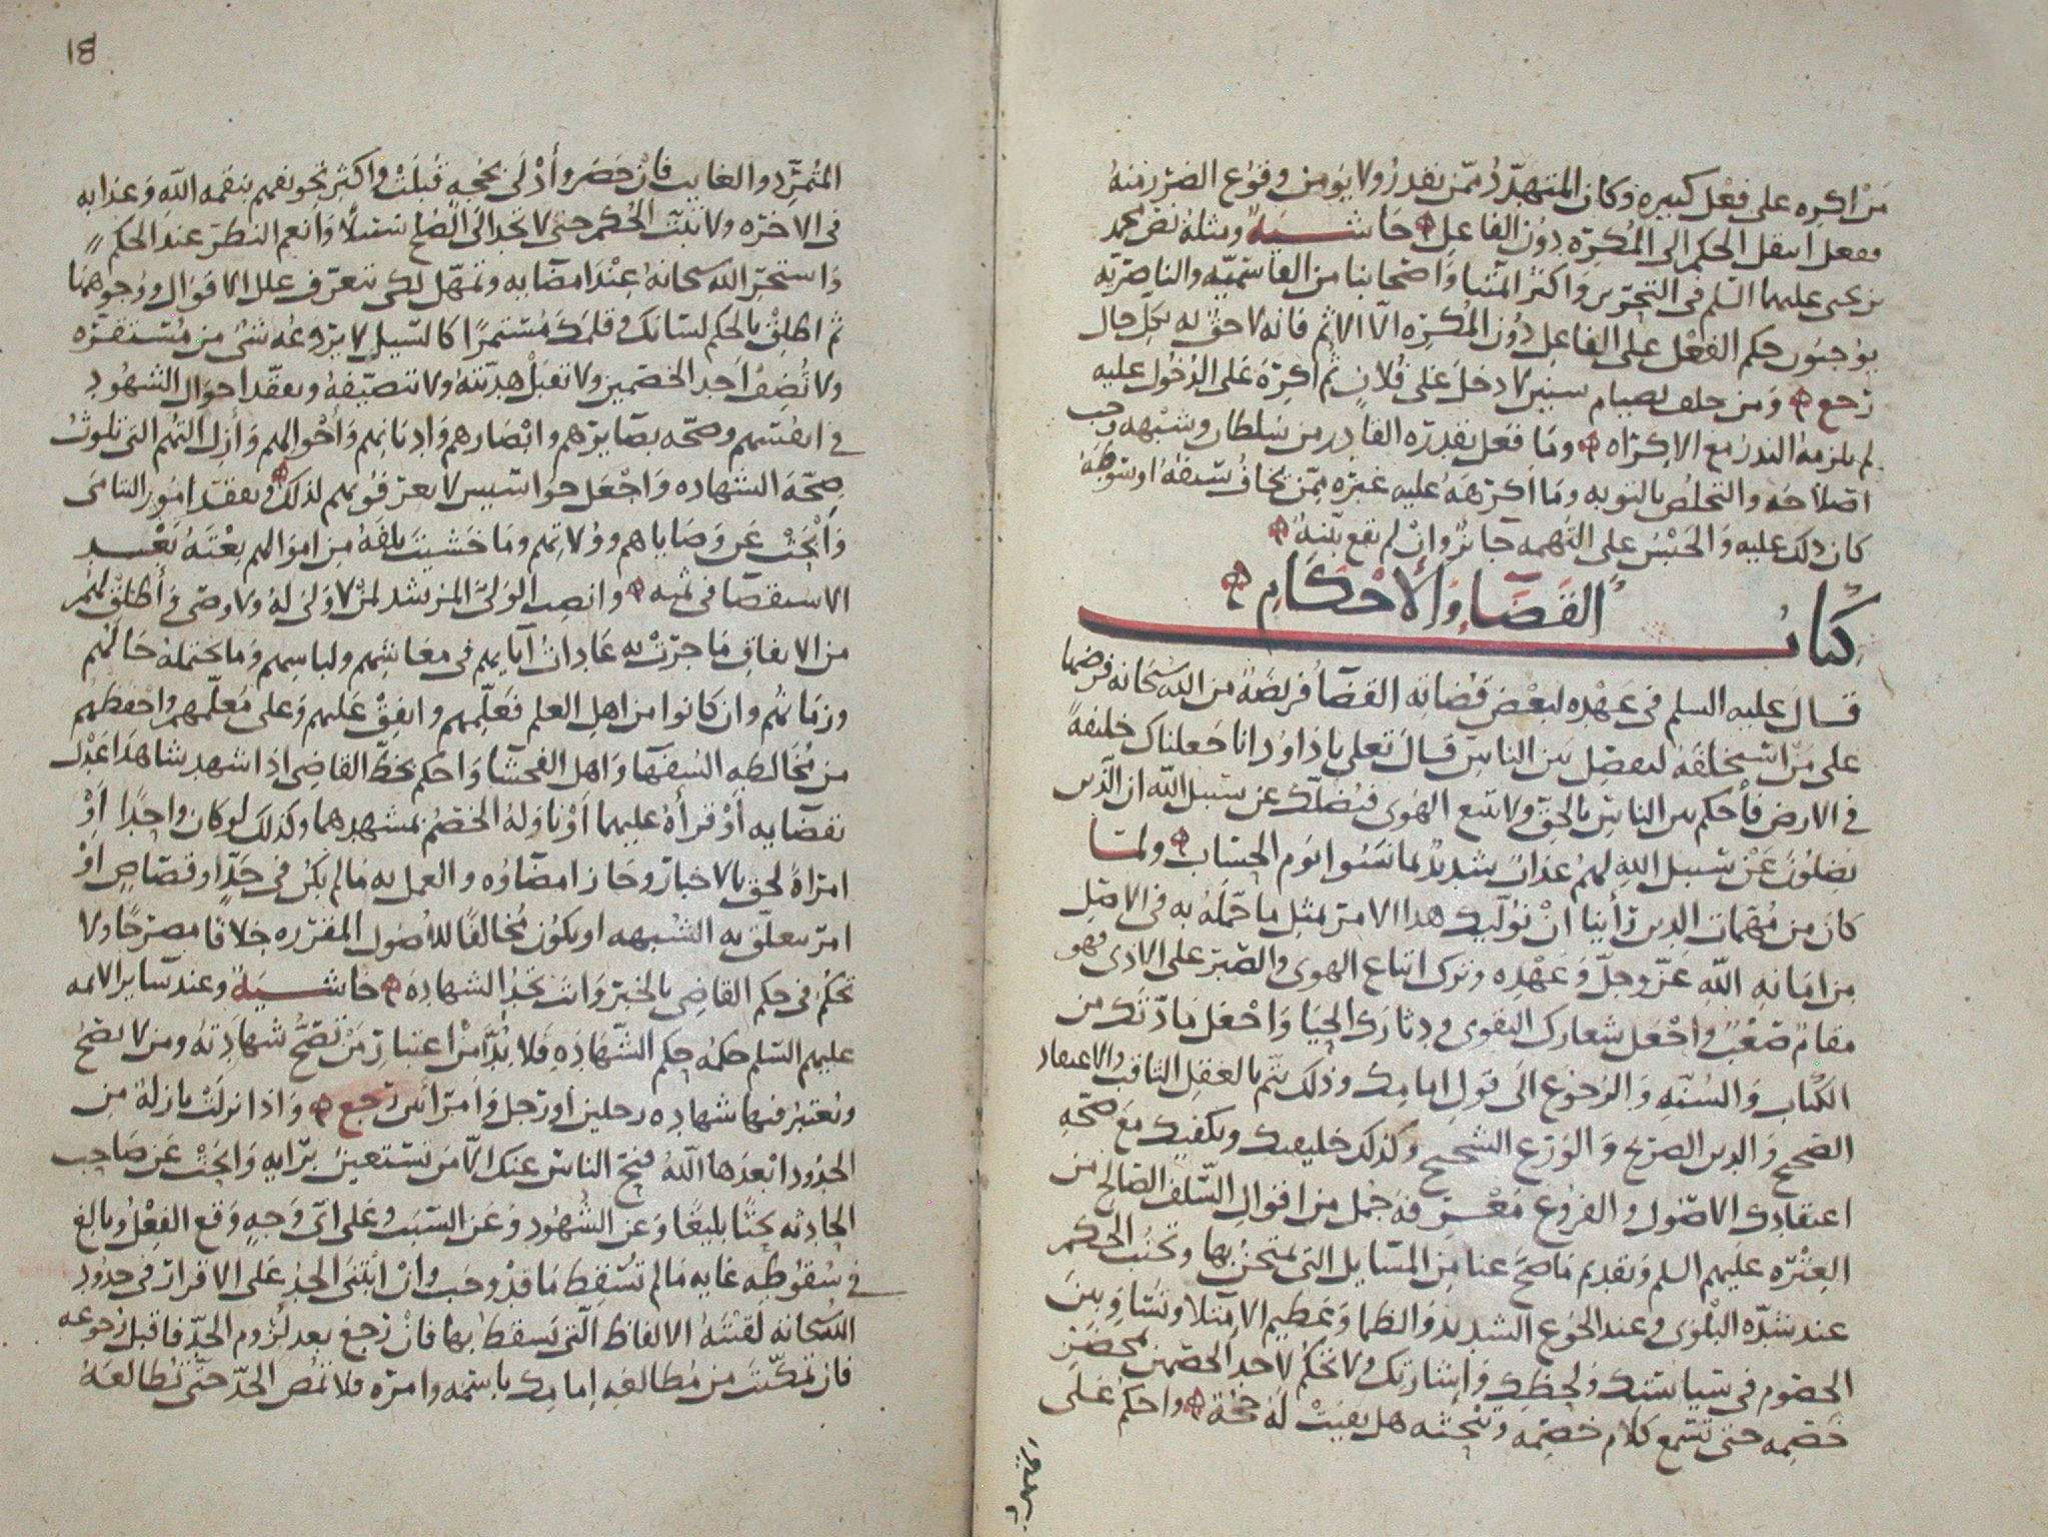 من اكره على فعل كبيره وكان المتهدد ممن يقدر ولا يومن وقوع الضرر منه
ففعل انتقل الحكم الى المكره دون الفاعل حاشيه ومثله نص محمد
بن يحيى عليهما السلم في التحرير واكثر ائمتنا واصحابنا من القاسميه والناصريه
يوجبون حكم الفعل على الفاعل دون المكره الا الاثم فانه لاحق به بكل حال
رجع ومن حلف بصيام سنين لا دخل على فلان ثم اكره على الدخول عليه
لم يلزمه النذر مع الاكراه وما فعل بقدره القادر من سلطان وشبهه وجب
اصلاحه والتخلص بالتوبه وما اكرهه عليه غيره ممن يخاف سيفه او سوطه
كان ذلك عليه والحبس على التهمه جائز وان لم يقع بينه
كتاب القضا والاحكام
قال عليه السلم في عهده لبعض قضاته القضا فريضة من الله سبحانه فرضها
على من استخلفه ليفصل بين الناس قال تعلى ياداود انا جعلناك خليفة
في الارض فاحكم بين الناس بالحق ولا تتبع الهوى فيضلك عن سبيل الله ان الذين
يضلون عن سبيل الله لهم عذاب شديد بما نسوا يوم الحساب ولما
كان من مهمات الدين رأينا ان نوليك هذا الامر بمثل ما حمله به في الاصل
من امانه الله عز وجل وعهده وترك اتباع الهوى والصبر على الاذى فهو
مقام صعب واجعل شعارك التقوى ودثارك الحيا واجعل مادتك من
الكتاب والسنه والرجوع الى قول امامك وذلك يتم بالعقل الثاقب والاعتقاد
الصحيح والدين الصريح والورع الشحيح وكذلك خليفتك ويكفيك مع صحه
اعتقادك الاصول والفروع معرفة جمل من اقوال السلف الصالح من
العتره عليهم السلم وتقديم ما صح عنا من المسايل التي يمتحن بها وتجنب الحكم
عند شده البلوى وعند الجوع الشديد والظما وعظيم الامتلا وتساو بين
الخصوم في سياستك ولحظك واشارتك ولا تحكم لاحد الخصمين بمحضر
خصمه حتى تسمع كلام خصمه وتبحثه هل بقيت له حجة واحكم على
المتمرد
المتمرد والغايب فان حضر وأدلى بحجه قبلت واكثر تخويفهم بنقمه الله وعذابه
في الاخره ولا تبت الحكم حتى لا تجد الى الصلح سبيلا وانعم النظر عند الحكم
واستخر الله سبحانه عند امضايه وتمهل لكي تتعرف علل الاقوال ووجوهها
ثم اطلق بالحكم لسانك وقلمك مستمرا كالسيل لا يروعه شي من مستقره
ولا تضف احد الخصمين ولا تقبل هديته ولا تتضيفه وتفقد احوال الشهود
في انفسهم وصحه بصايرهم وابصارهم واديانهم واحوالهم وأزل التهم التي تلوث
صحة الشهاده واجعل جواسيس لا يعرفونهم لذلك وتفقد امور اليتامى
وابحث عن وصاياهم وولاتهم وما خشيت تلفه من اموالهم بعته بعد
الاستقصا في ثمنه وانصب الولي المرشد لمن لا ولي له ولا وصي واطلق لهم
من الانفاق ما جرت به عادات آبايهم في معايشهم ولباسهم وما تحتمله حالهم
وزمانهم وان كانوا من اهل العلم فعلمهم وانفق عليهم وعلى معلمهم واحفظهم
من مخالطه السفها واهل الفحشا واحكم بخط القاضي اذا شهد شاهدا عدل
بقضايه أو قرأه عليهما أو ناوله الخصم بمشهدهما وكذلك لو كان واحدا أو
امراة لحق بالاخبار وجاز امضاؤه والعمل به ما لم يكن في حد او قصاص او
امر يتعلق به الشبهه او يكون مخالفا للاصول المقرره خلافا مصرحا ولا
تحكم في حكم القاضي بالخبر وانت تجد الشهاده حاشيه وعند ساير الائمه
عليهم السلم حكمه حكم الشهاده فلا بد من اعتبار من تصح شهادته ومن لا تصح
وتعتبر فيها شهاده رجلين او رجل وامرأتين رجع واذا نزلت نازلة من
الحدود ابعدها الله فنح الناس عنك الا من تستعين برايه وابحث عن صاحب
الحادثه بحثا بليغا وعن الشهود وعن السبب وعلى اي وجه وقع الفعل وبالغ
في سقوطه غايه ما لم تسقط ما قد وجب وان ابتنى الحد على الاقرار في حدود
الله سبحانه لقنته الالفاظ التي يسقط بها فان رجع بعد لزوم الحد فاقبل رجوعه
فان تمكنت من مطالعه امامك باسمه وامره فلا تمض الحد حتى تطالعه
18